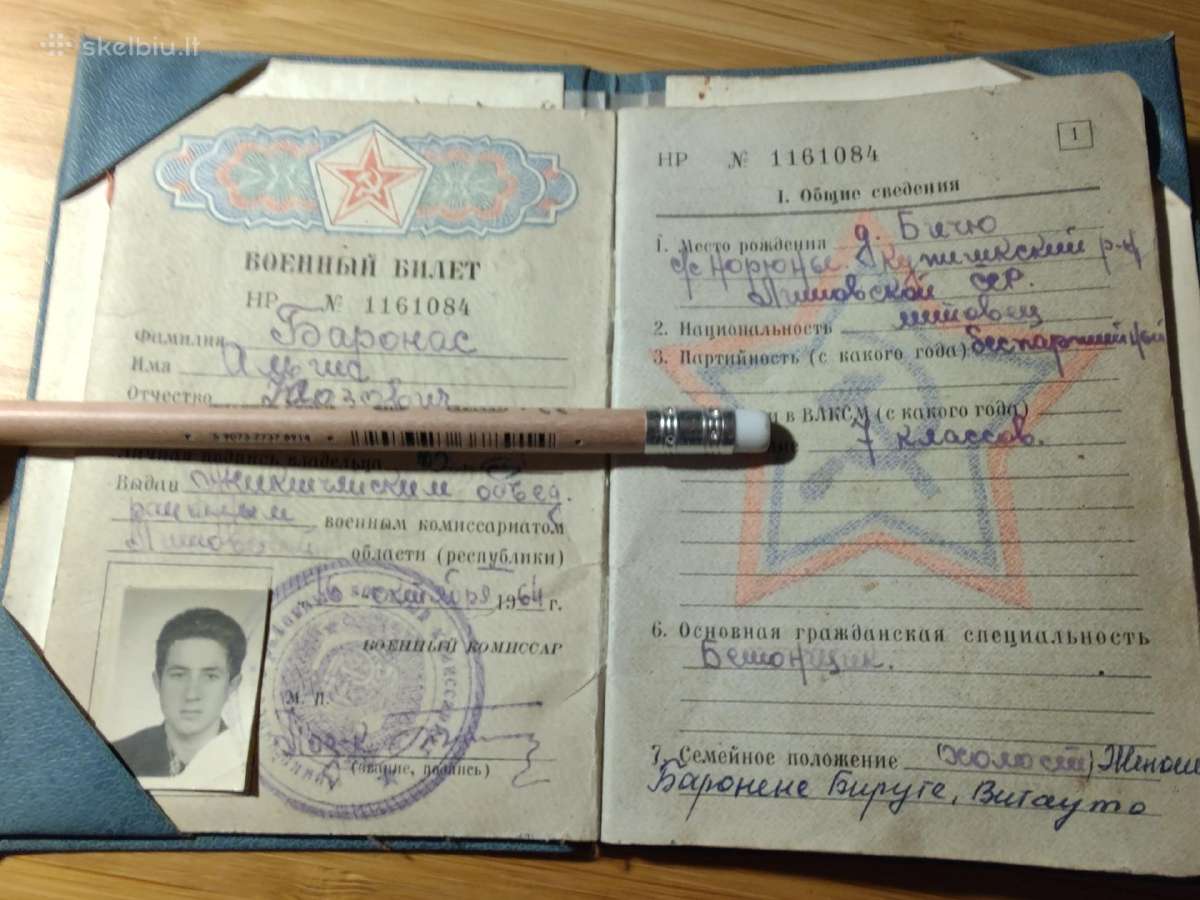 skelbiu.lt
ВОЕННЫЙ БИЛЕТ
НР № 1161084
Фамилия Баронас
Имя
Отчество Казович
5 9073 7737 8914
Личная подпись владельца
Выдан объед.
военным комиссариатом
Литовской области (республики)
16 октября 1964 г.
ВОЕННЫЙ КОМИССАР
М. П.
(звание, подпись)
1
НР № 1161084
I. Общие сведения
1. Место рождения д. Бичю
р-н
Литовской ССР.
2. Национальность литовец
3. Партийность (с какого года) беспартийный
в ВЛКСМ (с какого года)
7 классов.
6. Основная гражданская специальность
Бетонщик.
7. Семейное положение (холост) Женат
Баронене Бируте, Витауто